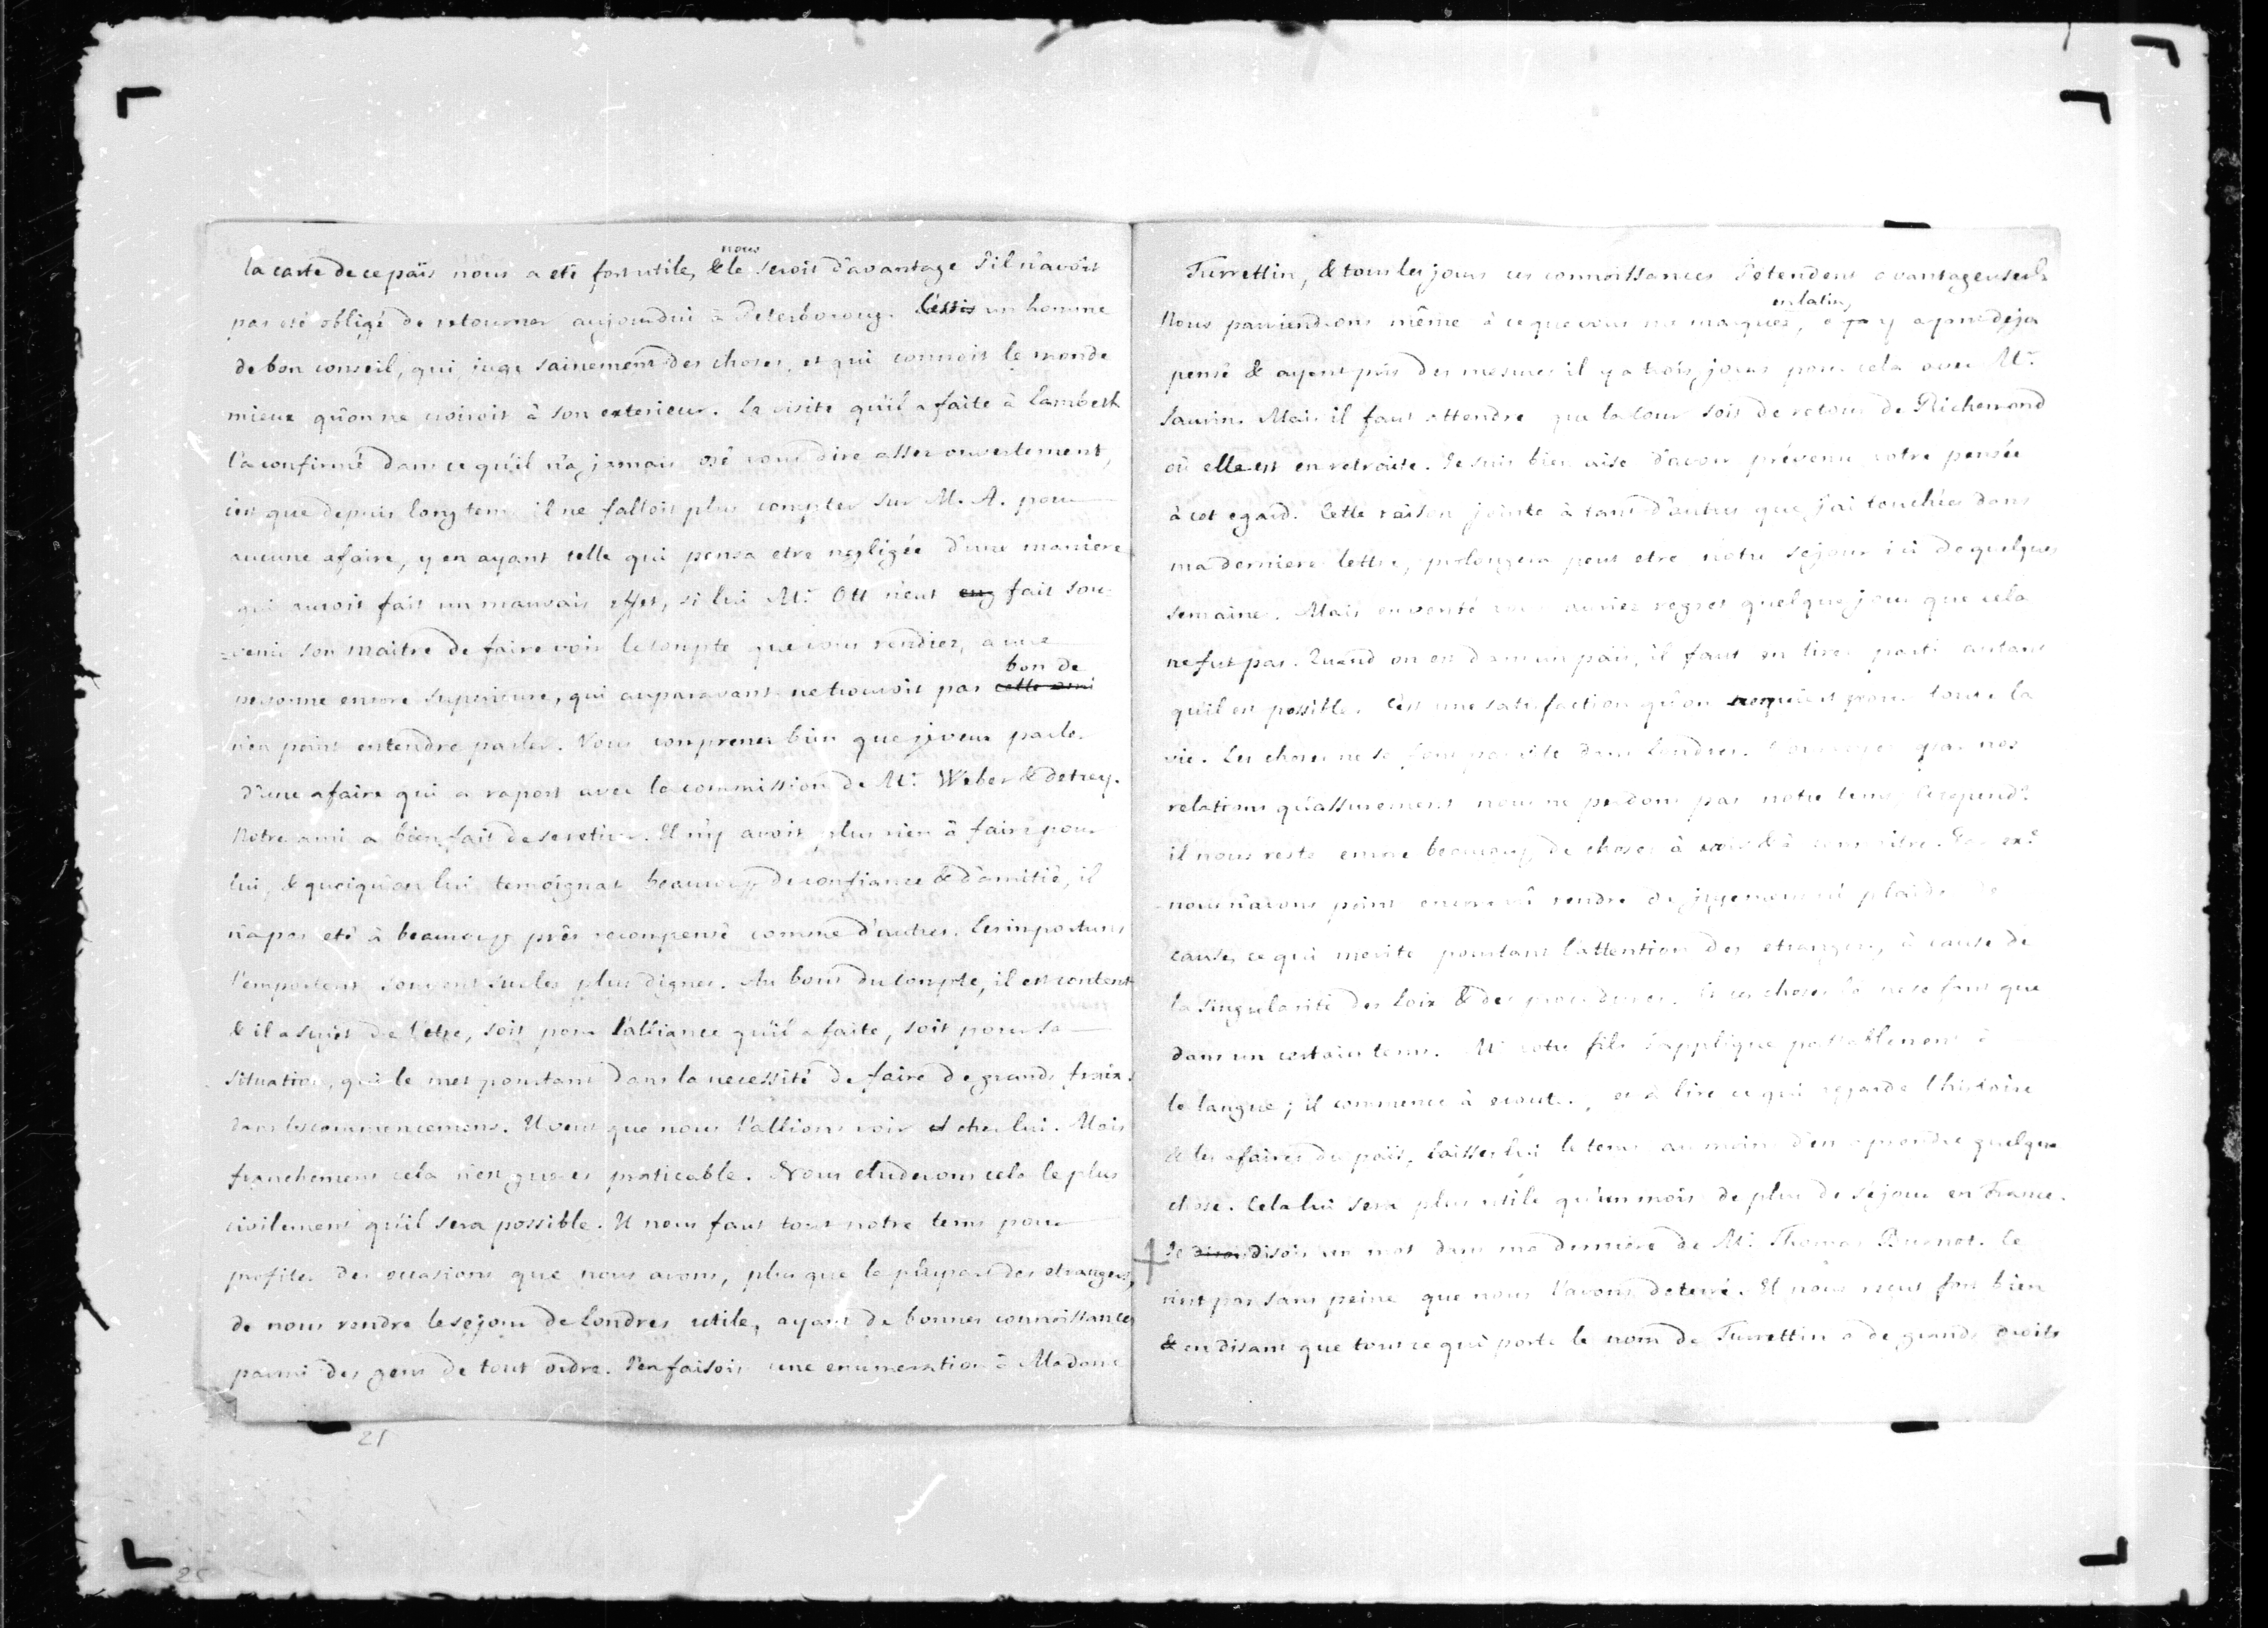 nous
la carte de ce païs nous a eté fort utile, & le seroit d'avantage s'il n'avoit
pas eté obligé de retourner aujourdui à Peterboroug. C'est un homme
de bon conseil, qui juge sainement des choses, et qui connoit le monde
mieux qu'on ne croiroit à son exterieur. La visite qu'il a faite à Lambeth
l'a confirmé dans ce qu'il n'a jamais osé vous dire assez ouvertement,
c'est que depuis long tems il ne falloit plus compter sur M. A. pour
aucune afaire, y en ayant telle qui pensa etre negligée d'une maniere
qui auroit fait un mauvais effet, si lui Mr. Ott n'eut eu fait sou-
=venir son maitre de faire voir le compte que vous rendiez, a une
bon de
personne encore superieure, qui auparavant ne trouvoit pas
n'en point entendre parler. Vous comprenez bien que je veux parler
d'une afaire qui a raport avec la commission de Mr. Weber & detrey.
Notre ami a bien fait de se retirer. Il n'y avoit plus rien à faire pour
lui, & quoiqu'on lui temoignat beaucoup de confiance & d'amitié, il
n'a pas eté à beaucoup près recompensé comme d'autres. Les importuns
l'emportent souvent sur les plus dignes. Au bout du compte, il est content
& il a sujet de l'etre, soit pour l'alliance qu'il a faite, soit pour sa
situation, qui le met pourtant dans la necessité de faire de grands fraix
dans les commencemens. Il veut que nous l'allions voir chez lui. Mais
franchement cela n'est gueres praticable. Nous eluderons cela le plus
civilement qu'il sera possible. Il nous faut tout notre tems pour
profiter des occasions que nous avons, plus que la plupart des etrangers,
de nous rendre le sejour de Londres utile, ayant de bonnes connoissances
parmi des gens de tout ordre. J'en faisois une enumeration à Madame
21
25
Turrettin, & tous les jours ces connoissances s'etendent avantageusemt.
en latin,
Nous parviendrons même à ce que vous me marquez, y deja
pensé & ayant pris des mesures il y a trois jours pour cela avec Mr.
Saurin. Mais il faut attendre que la cour soit de retour de Richemond
où elle est en retraite. Je suis bien aise d'avoir prévenu votre pensée
à cet egard. Cette raison jointe à tant d'autres que j'ai touchées dans
ma derniere lettre, prolongera peut etre notre sejour ici de quelques
semaines. Mais en verité vous auriez regret quelque jour que cela
ne fut pas. Quand on est dans un païs, il faut en tirer parti autant
qu'il est possible. C'est une satisfaction qu'on pour toute la
vie. Les choses ne se font pas vite dans Londres. par nos
relations qu'assurement nous ne perdons pas notre tems. Cependt.
il nous reste encore beaucoup de choses à voir & à connoitre. Par exe.
nous n'avons point encore vû rendre de jugemens ni plaider de
cause, ce qui merite pourtant l'attention des etrangers, à cause de
la singularité des loix & des procedures. Et ces choses là ne se font que
dans un certain tems. Mr. votre fils s'applique passablement à
la langue; il commence à ecouter, et à lire ce qui regarde l'histoire
& les afaires du païs, laissez lui le tems au moins d'en aprendre quelque
chose. Cela lui sera plus utile qu'un mois de plus de sejour en France.
+ Je disois disois un mot dans ma derniere de Mr. Thomas Burnet. Ce
n'est pas sans peine que nous l'avons deterré. Il nous reçut fort bien
& en disant que tout ce qui porte le nom de Turrettin a de grands droits